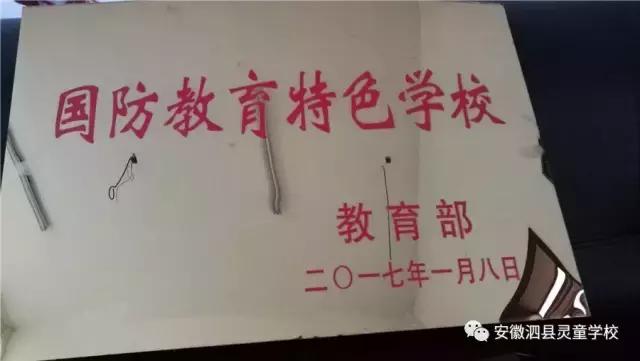 国防教育特色学校
教育部
二〇一七年一月八日
安徽泗县灵童学校